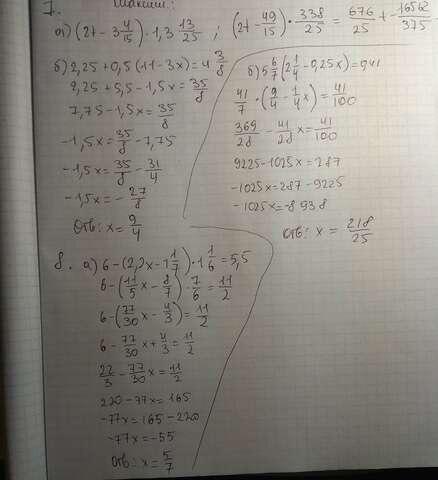 7.
а) (2t - 3 4/15) · 1,3 13/25 ; (2t - 49/15) · 338/25 = 676/25 t - 16562/375
б) 2,25 + 0,5(11-3x) = 4 3/8
2,25 + 5,5 - 1,5x = 35/8
7,75 - 1,5x = 35/8
-1,5x = 35/8 - 7,75
-1,5x = 35/8 - 31/4
-1,5x = -27/8
Отв: x = 9/4
б) 5 6/7 (2 1/4 - 0,25x) = 0,41
41/7 · (9/4 - 1/4 x) = 41/100
369/28 - 41/28 x = 41/100
9225 - 1025x = 287
-1025x = 287 - 9225
-1025x = -8938
Отв: x = 218/25
8. а) 6 - (2,2x - 1 1/7) · 1 1/6 = 5,5
6 - (11/5 x - 8/7) · 7/6 = 11/2
6 - (77/30 x - 4/3) = 11/2
6 - 77/30 x + 4/3 = 11/2
22/3 - 77/30 x = 11/2
220 - 77x = 165
-77x = 165 - 220
-77x = -55
Отв: x = 5/7